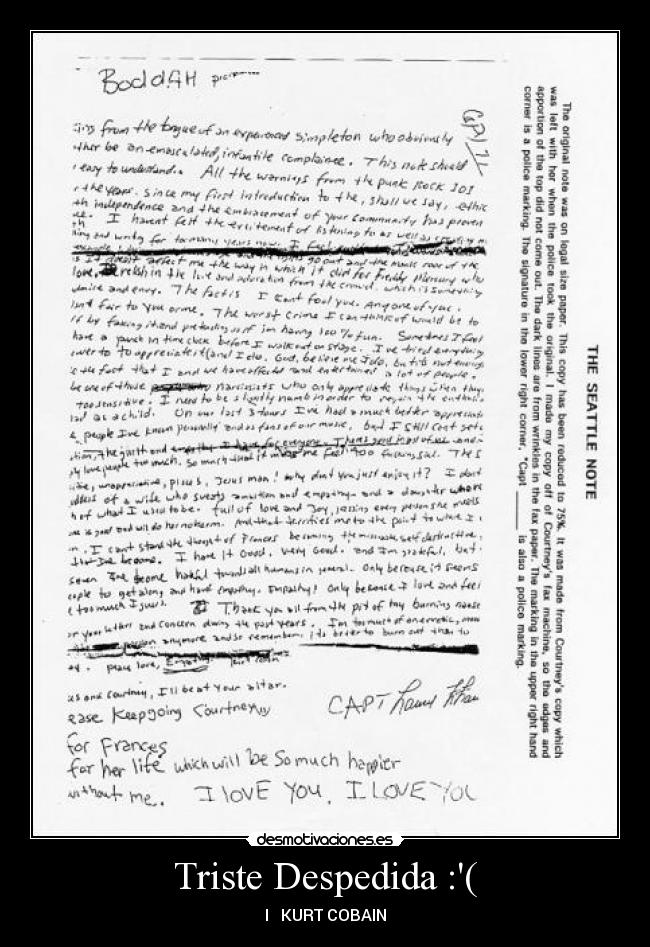 BoddAH
Capt
ing from the tongue of an experienced simpleton who obviously
ther be an emasculated, infantile complainee. This note should
easy to understand. All the warnings from the punk Rock 101
the years. Since my first introduction to the, shall we say, ethic
th independence and the embracement of your community has proven
I havent felt the excitement of listening to as well as
and writing for too many years now. I feel
go out and the manic roar of the
doesnt affect me the way in which it did for Freddy Mercury who
love, relish in the love and adoration from the crowd. which is something
and envy. The fact is I cant fool you. Any one of you.
isnt fair to you or me. The worst crime I can think of would be to
by faking it and pretending as if im having 100% fun. Sometimes I feel
have a punch in time clock before I walk out on stage. I've tried everything
ower to appreciate it (and I do. God, believe me I do, but its not enough
the fact that I and we have affected and entertained a lot of people.
be one of those narcissists who only appreciate things when they
too sensitive. I need to be slightly numb in order to regain the enthusi
as a child. On our last 3 tours I've had a much better appreciati
people I've known personally and as fans of our music, but I still cant get
the guilt and empathy I have for everyone. There's good in all of us
ly love people too much. So much that it makes me feel too fucking sad. The s
unappreciative, pisces, Jesus man! why dont you just enjoy it? I dont
ddess of a wife who sweats ambition and empathy and a daughter who re
h of what I used to be. full of love and Joy, kissing every person she meets
one is good and will do her no harm. And that terrifies me to the point to where I
I cant stand the thought of Frances becoming the miserable self destructive,
Ive become. I have it Good. very Good. and Im grateful, but
seven Ive become hateful towards all humans in general. Only because it seems
eople to get along and have empathy. Empathy! Only because I love and feel
too much I guess. Thank you all from the pit of my burning nause
or your letters and concern during the past years. Im too much of an erratic, moo
person anymore and so remember, its better to burn out than to
peace love, Empathy. Kurt Cobain
es and Courtney, I'll be at your altar.
ease Keep going Courtney
CAPT
for Frances
for her life which will be so much happier
without me. I LOVE YOU, I LOVE YOU
THE SEATTLE NOTE
The original note was on legal size paper. This copy has been reduced to 75%. It was made from Courtney's copy which
was left with her when the police took the original. I made my copy off of Courtney's fax machine, so the edges and
apportion of the top did not come out. The dark lines are from wrinkles in the fax paper. The marking in the upper right hand
corner is a police marking. The signature in the lower right corner, "Capt ________ is also a police marking.
desmotivaciones.es
Triste Despedida :'(
I KURT COBAIN